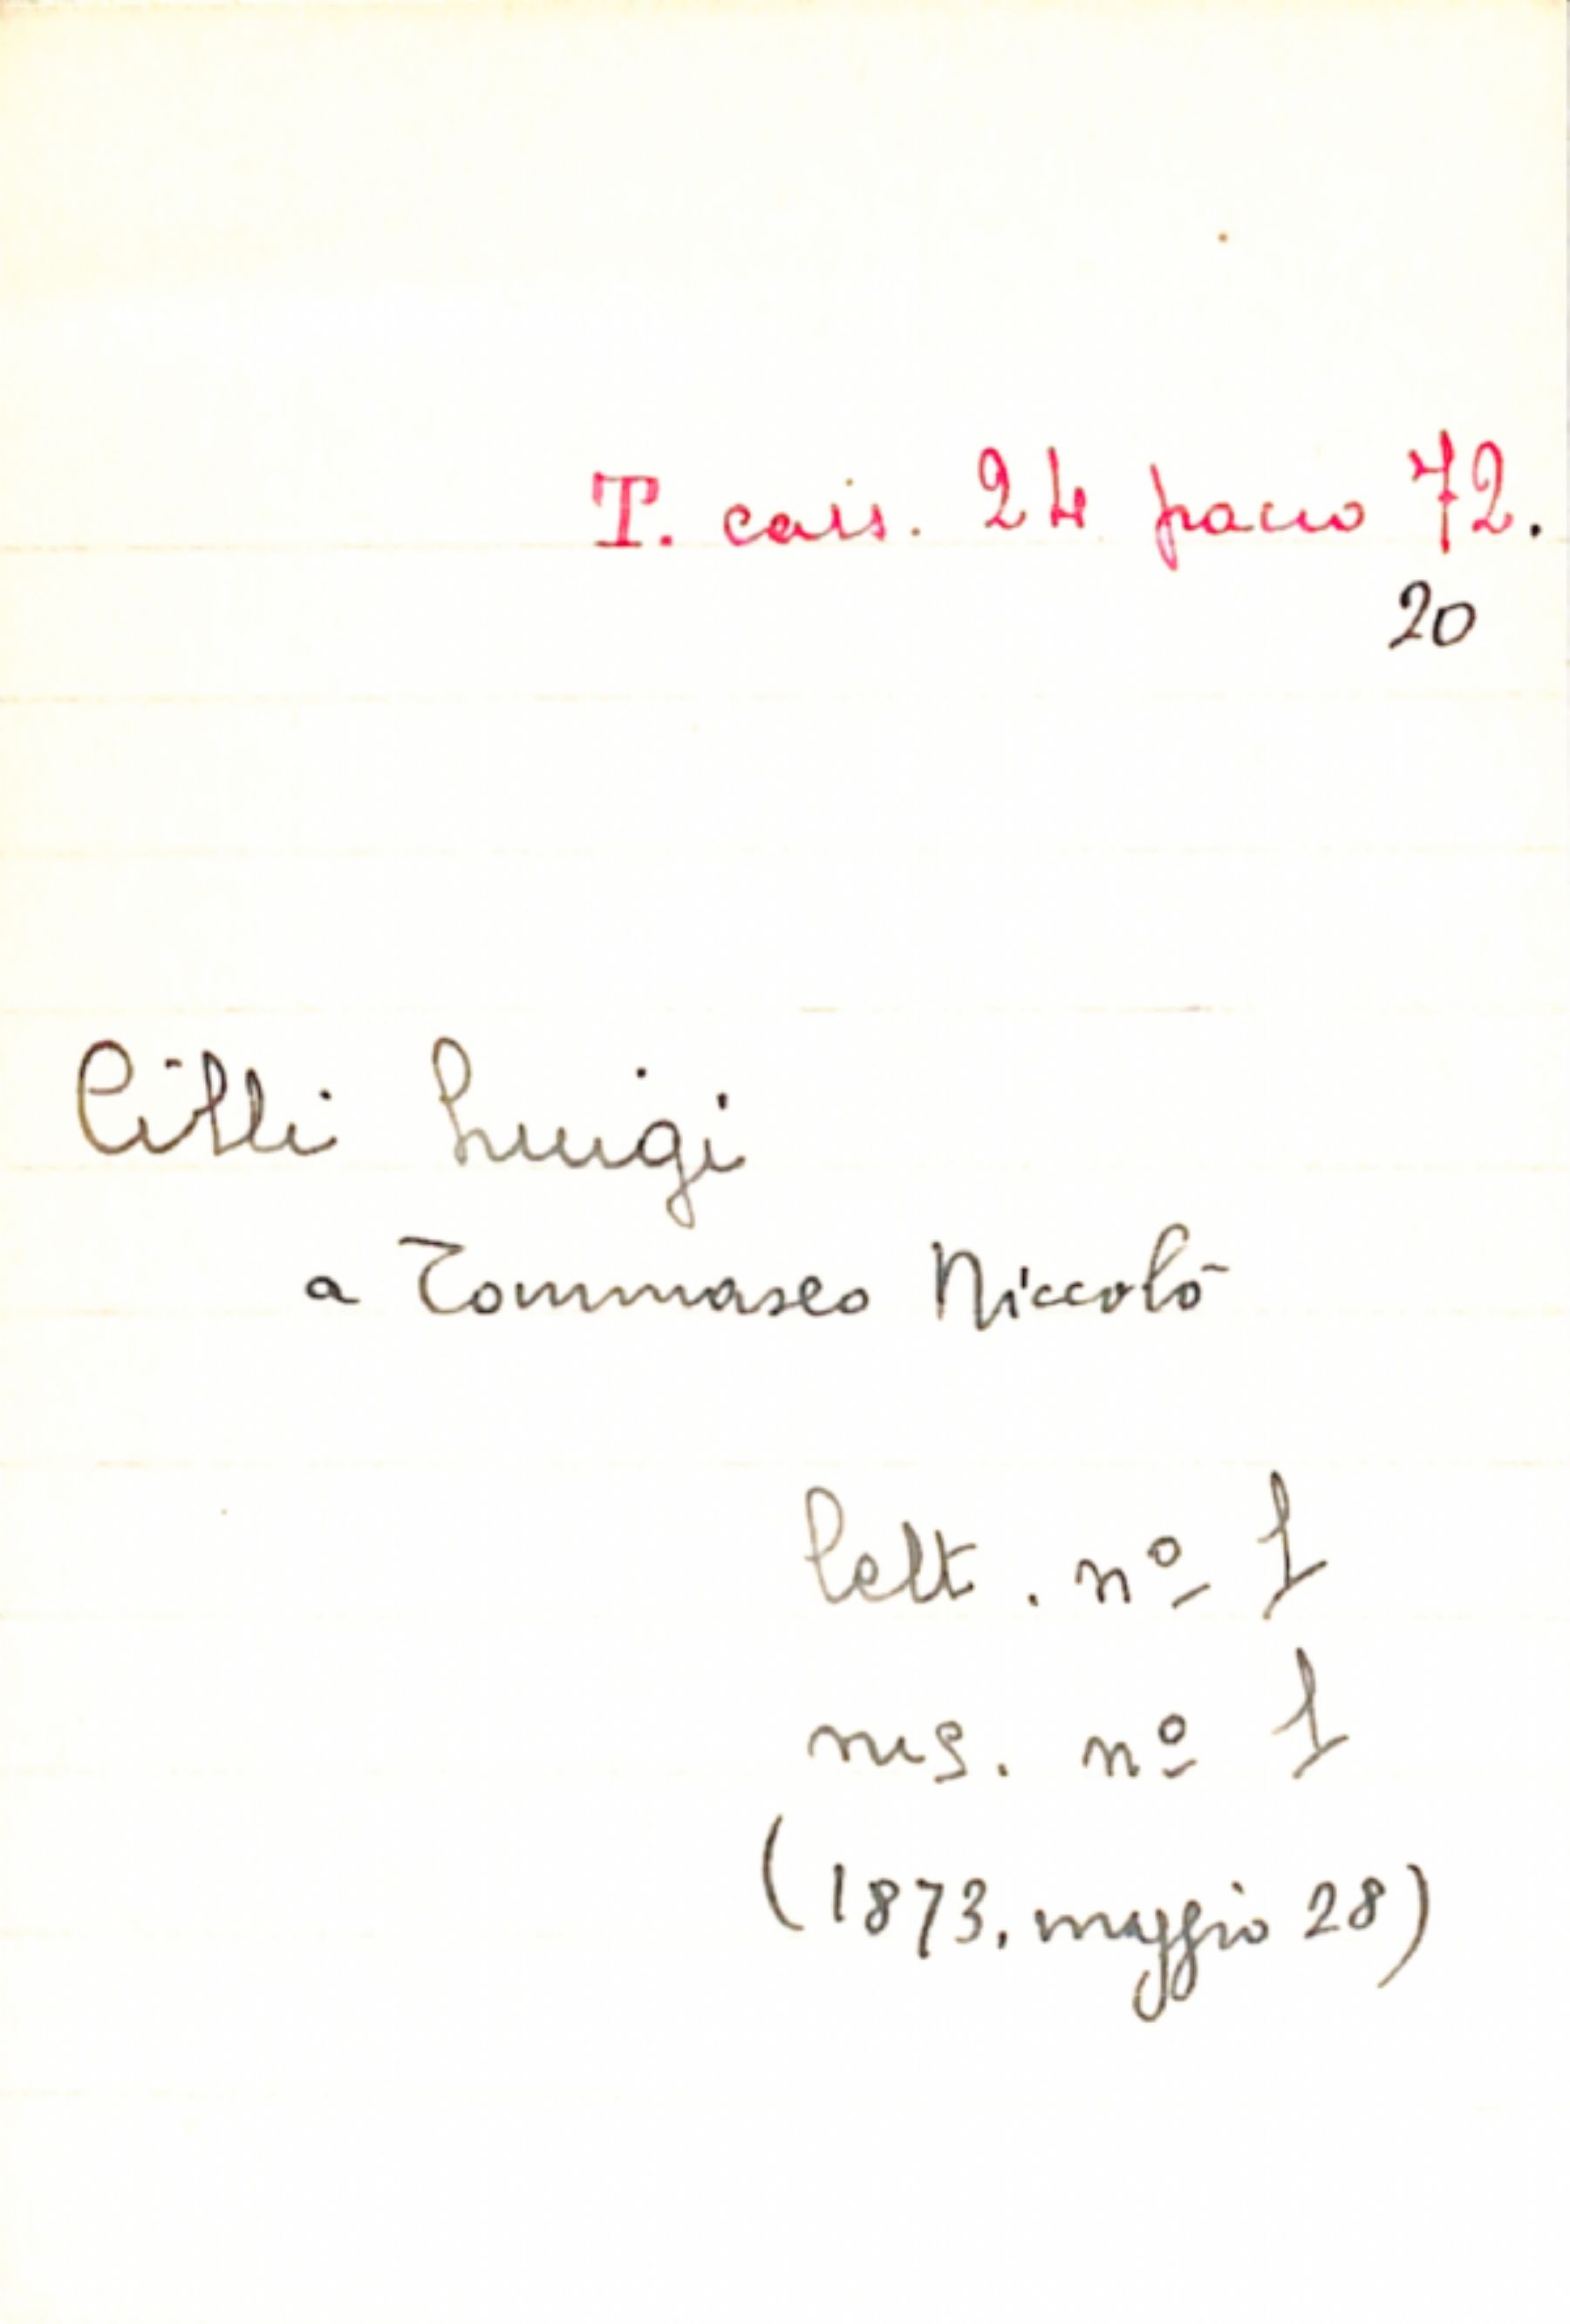 T. cass. 24 pacco 72.
20
Cilli Luigi
a Tommaseo Niccolò
lett. nº 1
ms. nº 1
(1873, maggio 28)